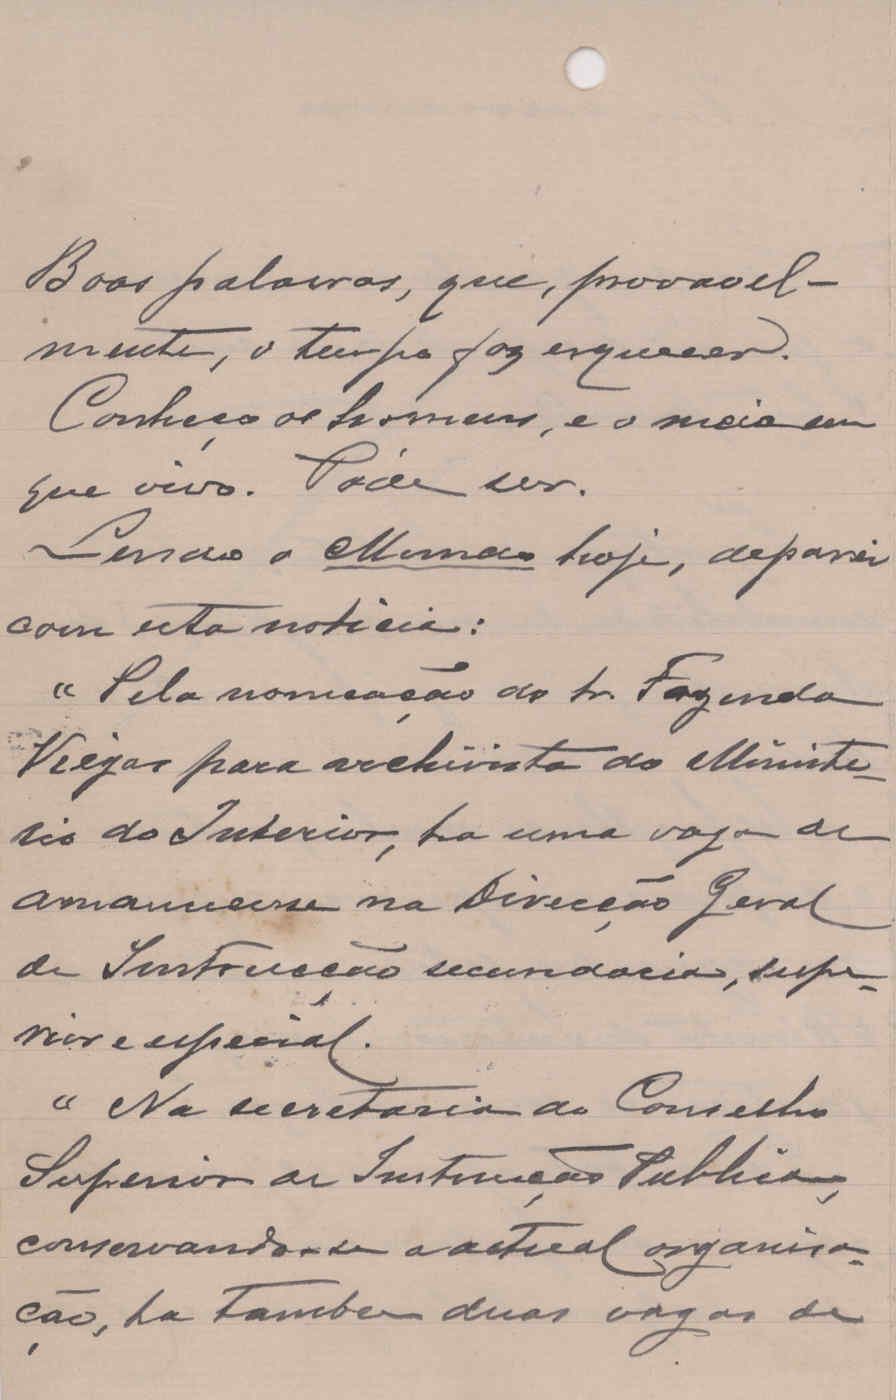 Boas palavras, que, provavel-
mente, o tempo faz esquecer.
Conheço os homens, e o meio em
que vivo. Póde ser.
Lendo o Mundo hoje, deparei
com esta noticia:
"Pela nomeação do sr. Fazenda
Viegas para archivista do Ministe-
rio do Interior, ha uma vaga de
amanuense na Direcção Geral
de Instrucção secundaria, supe-
rior e especial.
"Na secretaria do Conselho
Superior de Instrucção Publica,
conservando-se a actual organisa-
ção, ha tambem duas vagas de